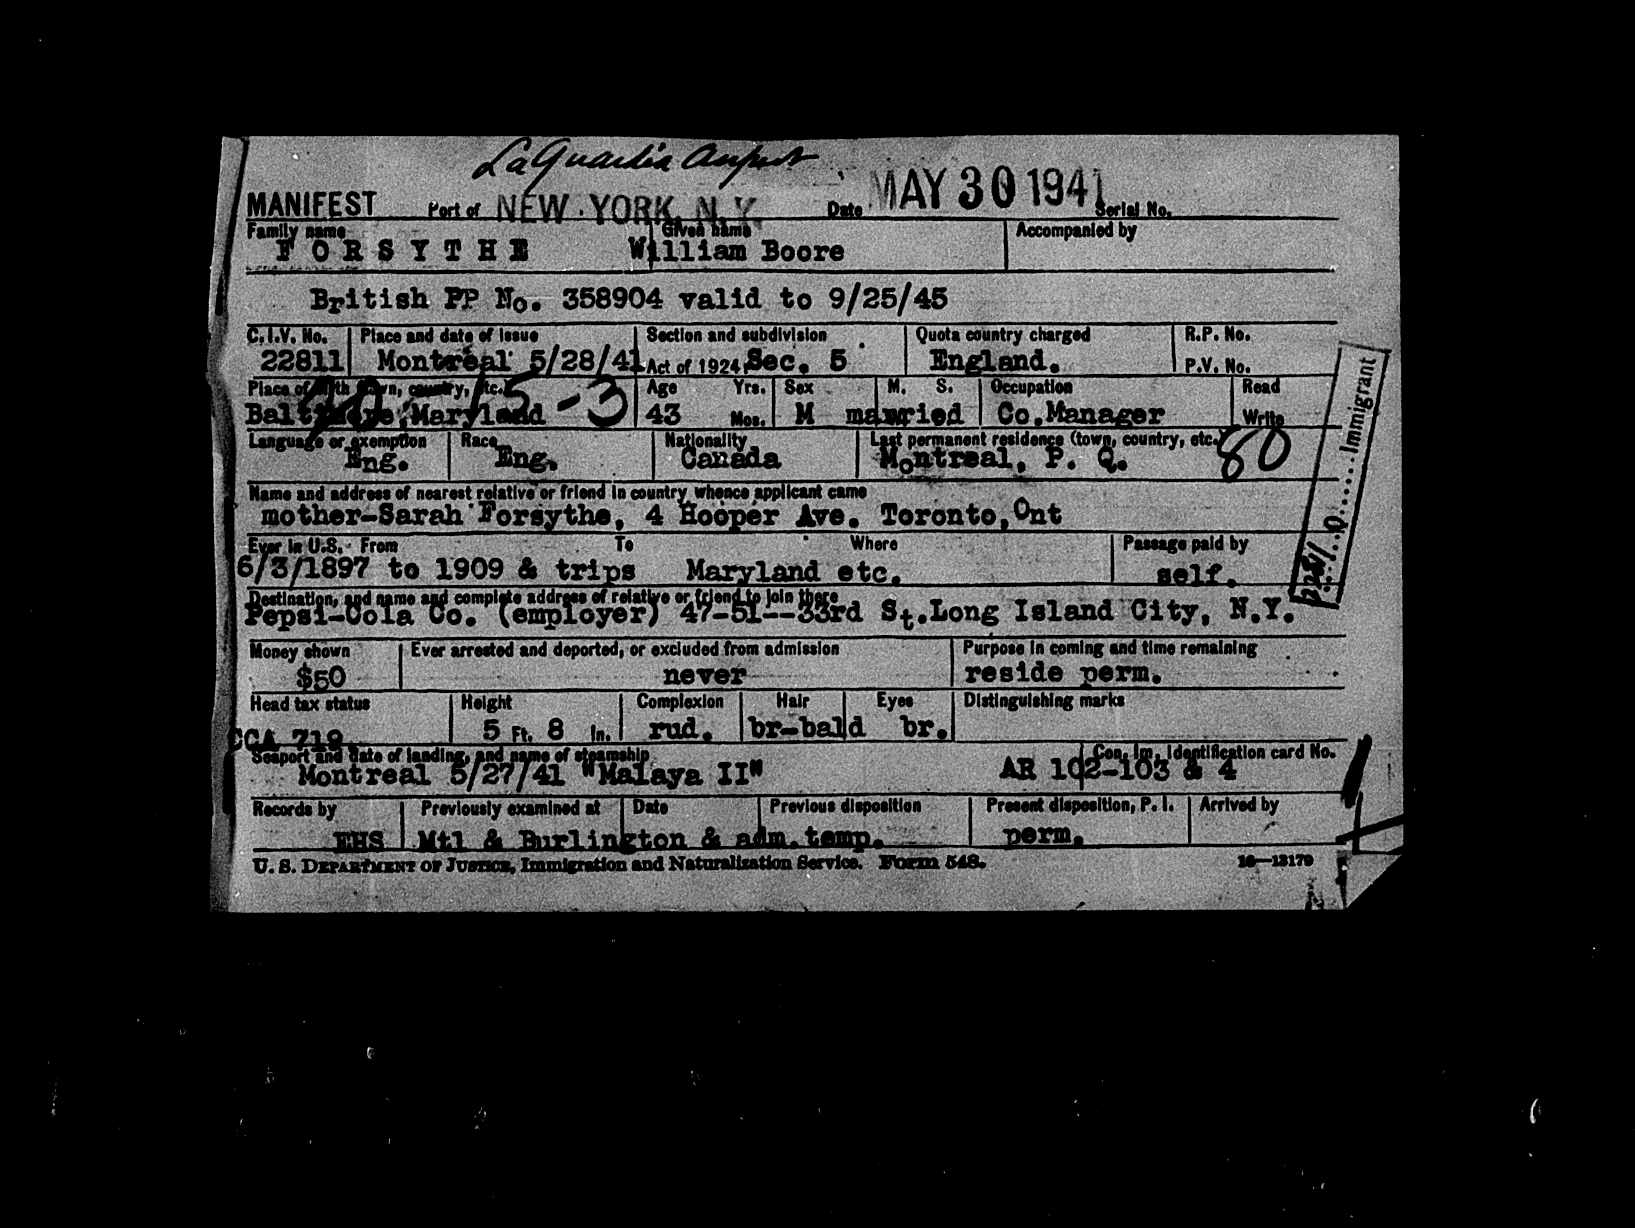 LaGuardia Airport
MANIFEST Port of NEW YORK, N.Y. Date MAY 30 1941 Serial No.
Family name Given name Accompanied by
FORSYTHE William Boore
British PP No. 358904 valid to 9/25/45
C.I.V. No. Place and date of issue Section and subdivision Quota country charged R.P. No.
22811 Montreal 5/28/41 Act of 1924, Sec. 5 England. P.V. No.
Place of birth (town, country, etc.) Age Yrs. Sex M. S. Occupation Read
Baltimore, Maryland -3 43 Mos. M married Co.Manager Write
Language or exemption Race Nationality Last permanent residence (town, country, etc.)
Eng. Eng. Canada Montreal, P. Q. 80
Name and address of nearest relative or friend in country whence applicant came
mother-Sarah Forsythe, 4 Hooper Ave. Toronto,Ont
Ever in U.S. From To Where Passage paid by
6/3/1897 to 1909 & trips Maryland etc. self.
Destination, and name and complete address of relative or friend to join there
Pepsi-Cola Co. (employer) 47-51--33rd St.Long Island City, N.Y.
Money shown Ever arrested and deported, or excluded from admission Purpose in coming and time remaining
$50 never reside perm.
Head tax status Height Complexion Hair Eyes Distinguishing marks
CCA 719 5 Ft. 8 In. rud. br-bald br.
Seaport and date of landing, and name of steamship Con. Im. Identification card No.
Montreal 5/27/41 "Malaya II" AR 102-103 & 4
Records by Previously examined at Date Previous disposition Present disposition, P. I. Arrived by
EHS Mtl & Burlington & adm.temp. perm.
U. S. DEPARTMENT OF JUSTICE, Immigration and Naturalization Service. Form 548. 16—13179
Immigrant